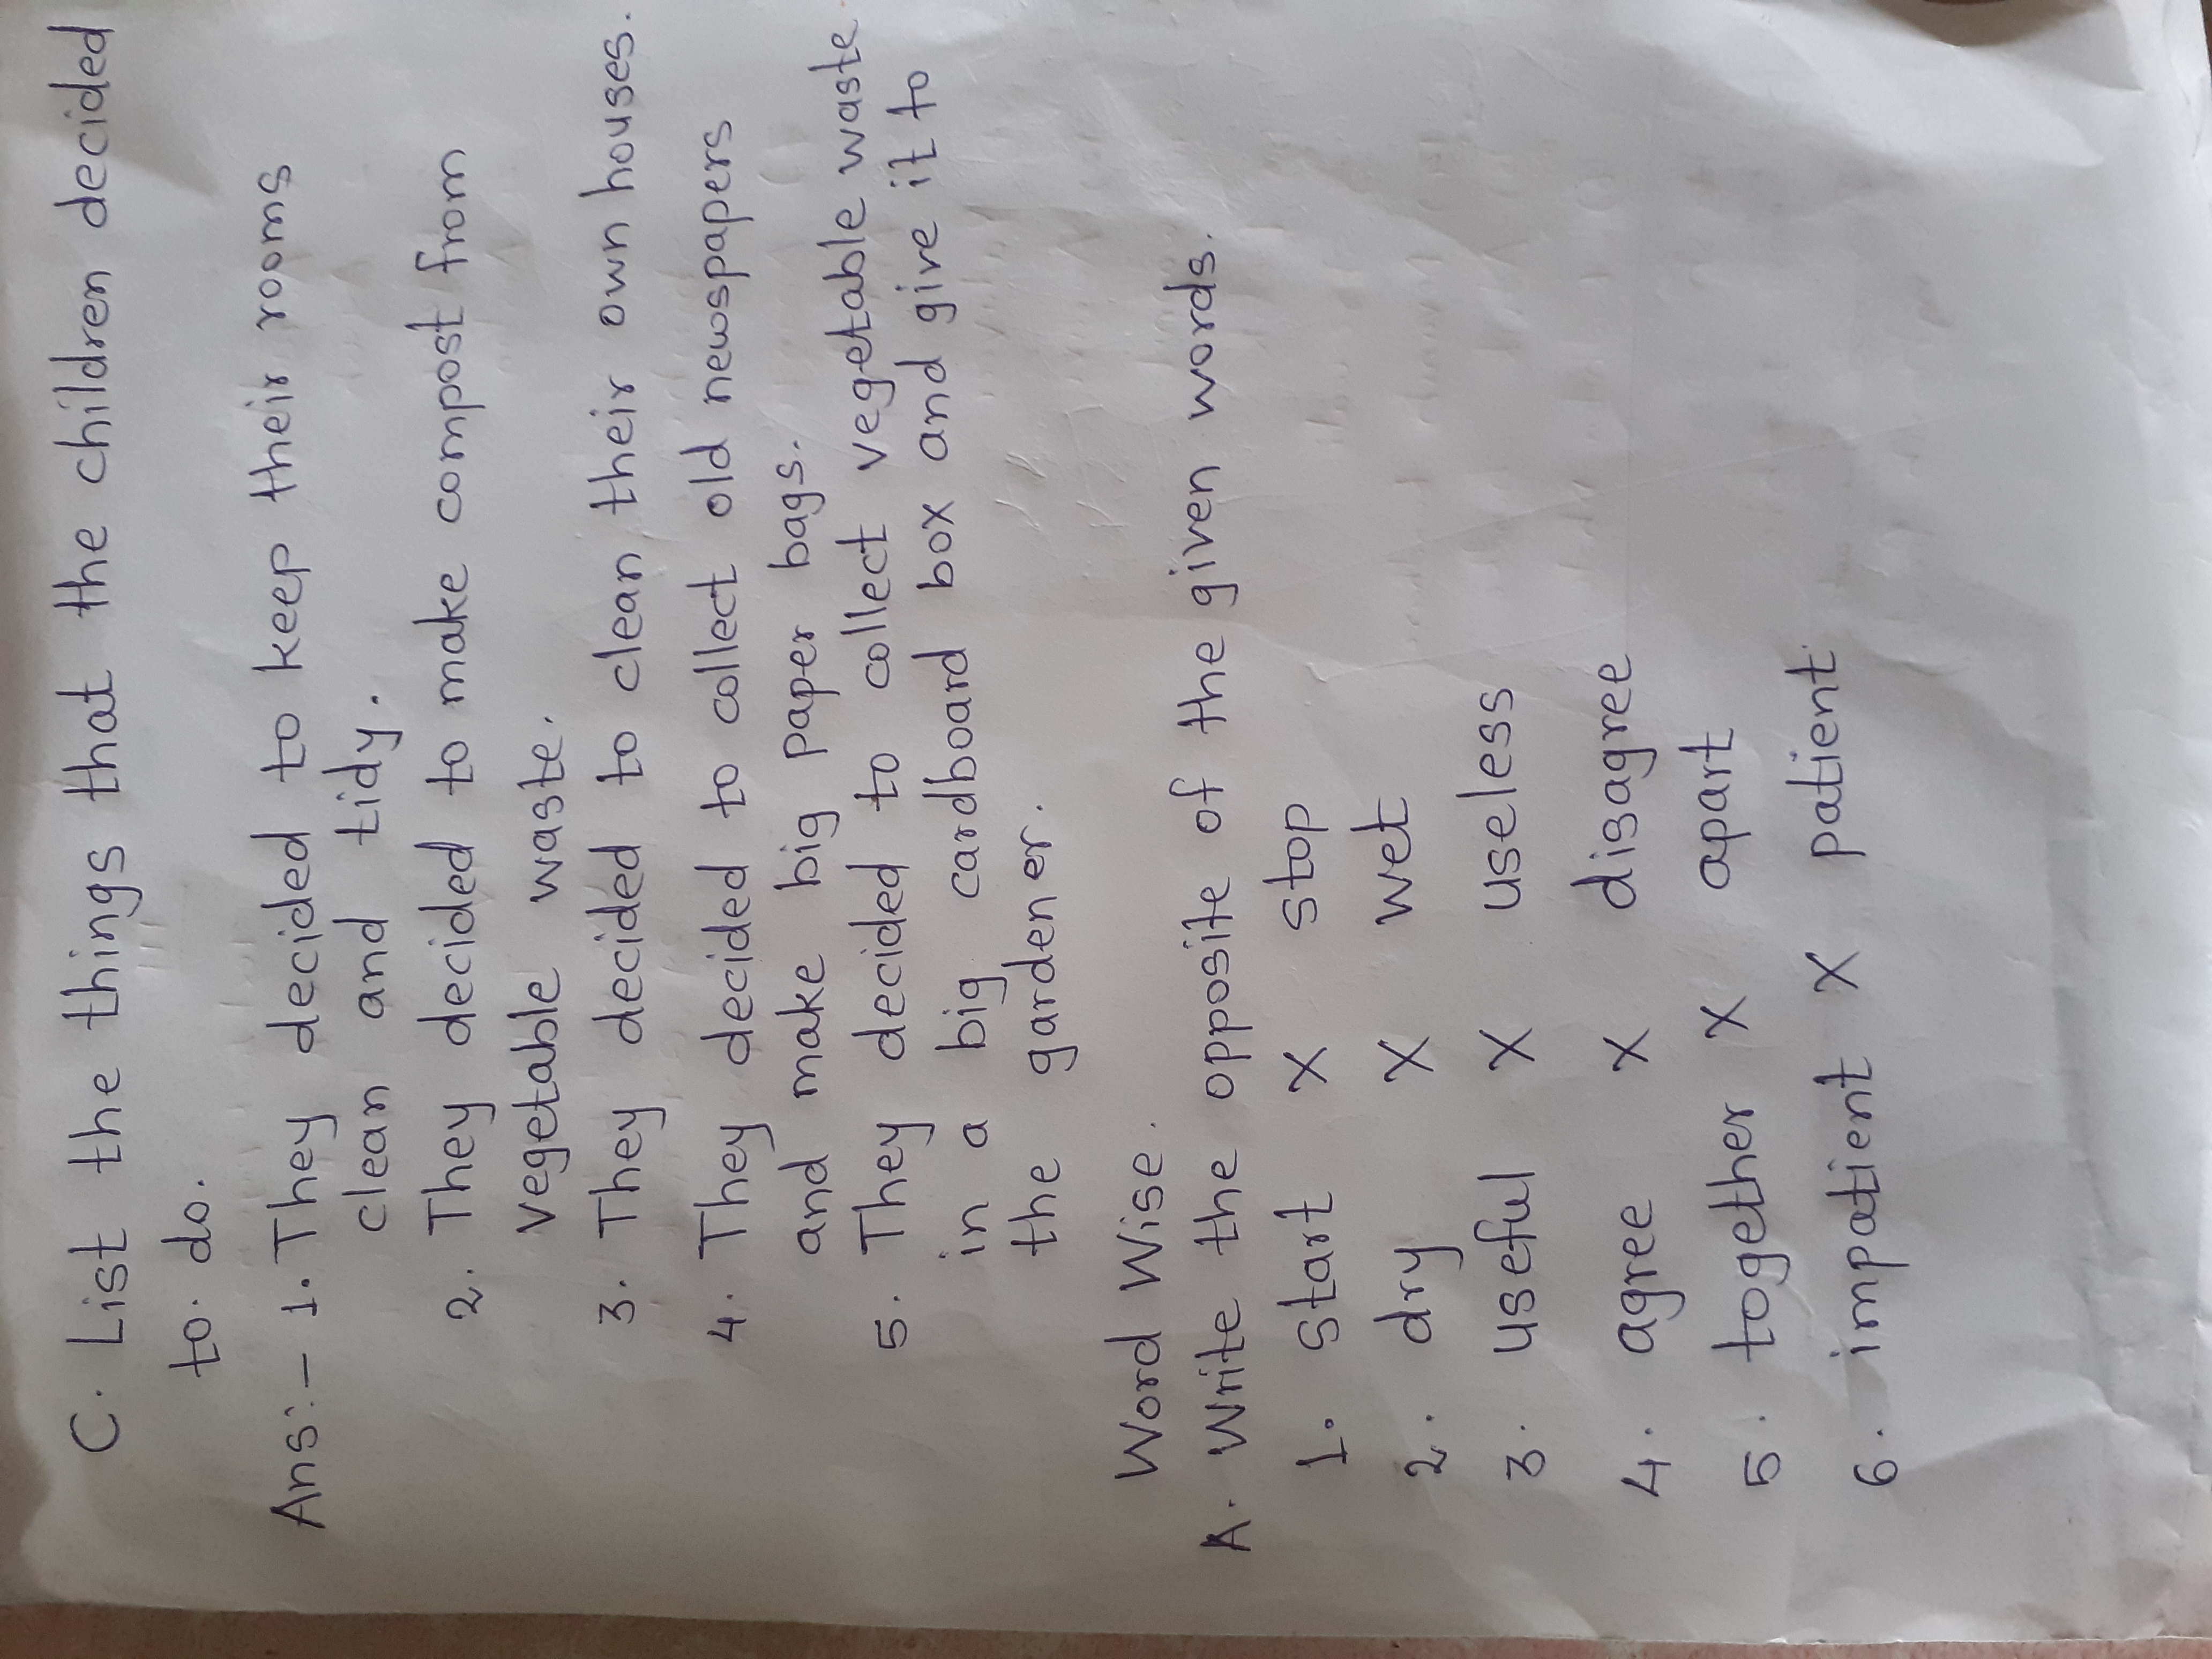 C. List the things that the children decided
to. do.
Ans:- 1. They decided to keep their rooms
clean and tidy.
2. They decided to make compost from
vegetable waste.
3. They decided to clean their own houses.
4. They decided to collect old newspapers
and make big paper bags.
5. They decided to collect vegetable waste
in a big cardboard box and give it to
the gardener.
Word Wise.
A. Write the opposite of the given words.
1. start X stop
2. dry X wet
3. useful X useless
4. agree X disagree
5. together X apart
6. impatient X patient